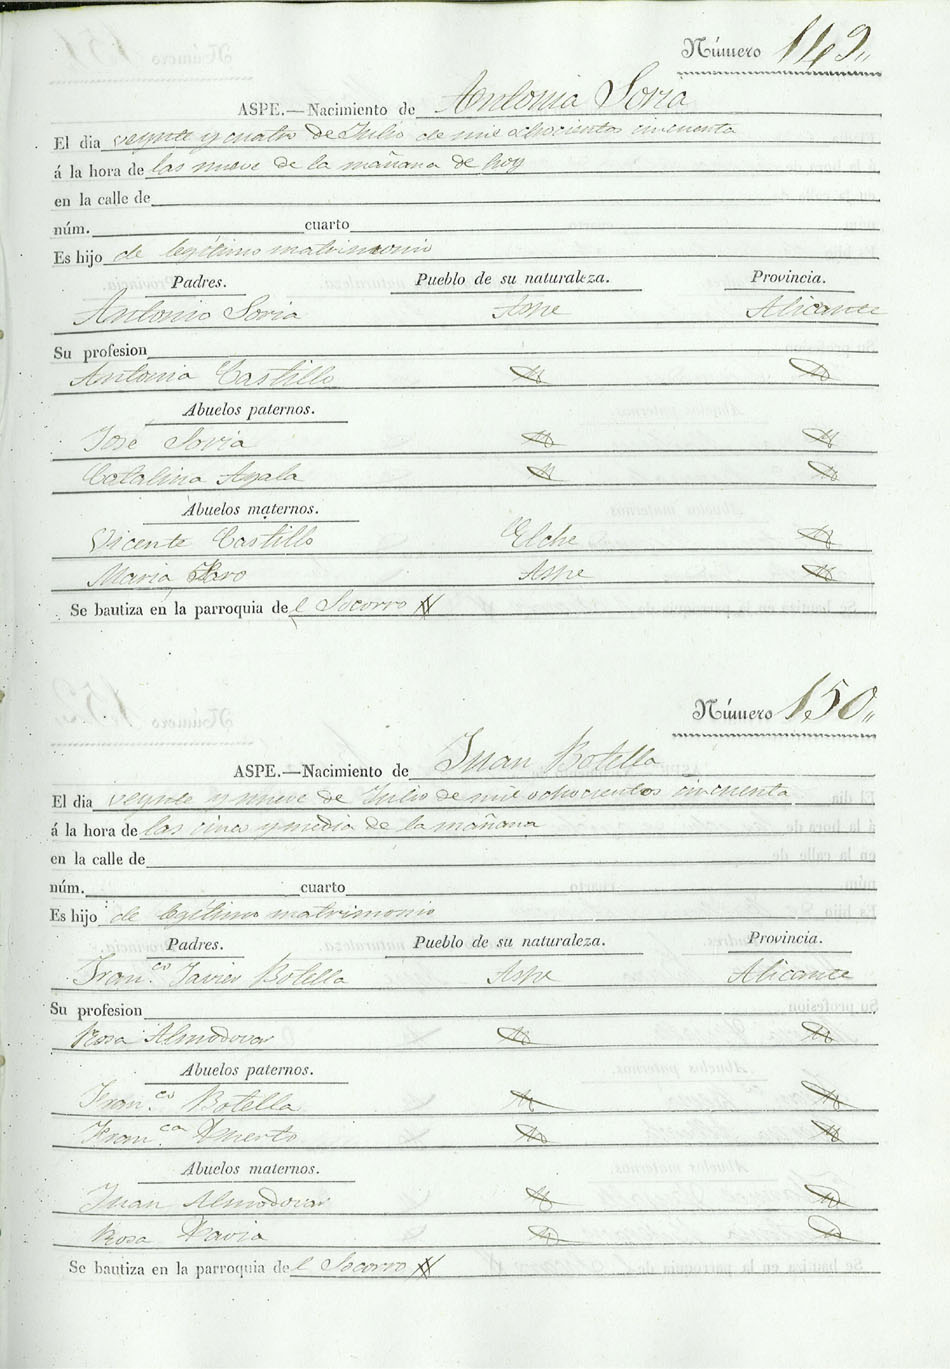 Número 149„
ASPE.—Nacimiento de Antonia Soria
El dia veynte y cuatro de Julio de mil ochocientos cincuenta
á la hora de las nueve de la mañana de hoy
en la calle de
núm. cuarto
Es hijo de legitimo matrimonio
Padres. Pueblo de su naturaleza. Provincia.
Antonio Soria Aspe Alicante
Su profesion
Antonia Castillo
Abuelos paternos.
José Soria
Catalina Ayala
Abuelos maternos.
Vicente Castillo Elche
Maria Aspe
Se bautiza en la parroquia del Socorro
Número 150„
ASPE.—Nacimiento de Juan Botella
El dia veynte y nueve de Julio de mil ochocientos cincuenta
á la hora de las cinco y media de la mañana
en la calle de
núm. cuarto
Es hijo de legitimo matrimonio
Padres. Pueblo de su naturaleza. Provincia.
Fran.co Javier Botella Aspe Alicante
Su profesion
Rosa Almodovar
Abuelos paternos.
Fran.co Botella
Fran.ca
Abuelos maternos.
Juan Almodovar
Rosa Pavia
Se bautiza en la parroquia del Socorro